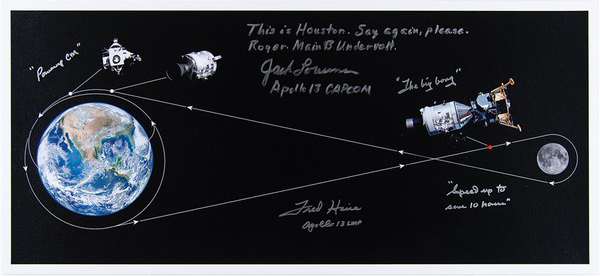 This is Houston. Say again, please.
Roger. Main B Undervolt.
Jack Lousma
Apollo 13 CAPCOM
"Powerup CM"
"The big bang"
"Speed up to
save 10 hours"
Fred Haise
Apollo 13 LMP